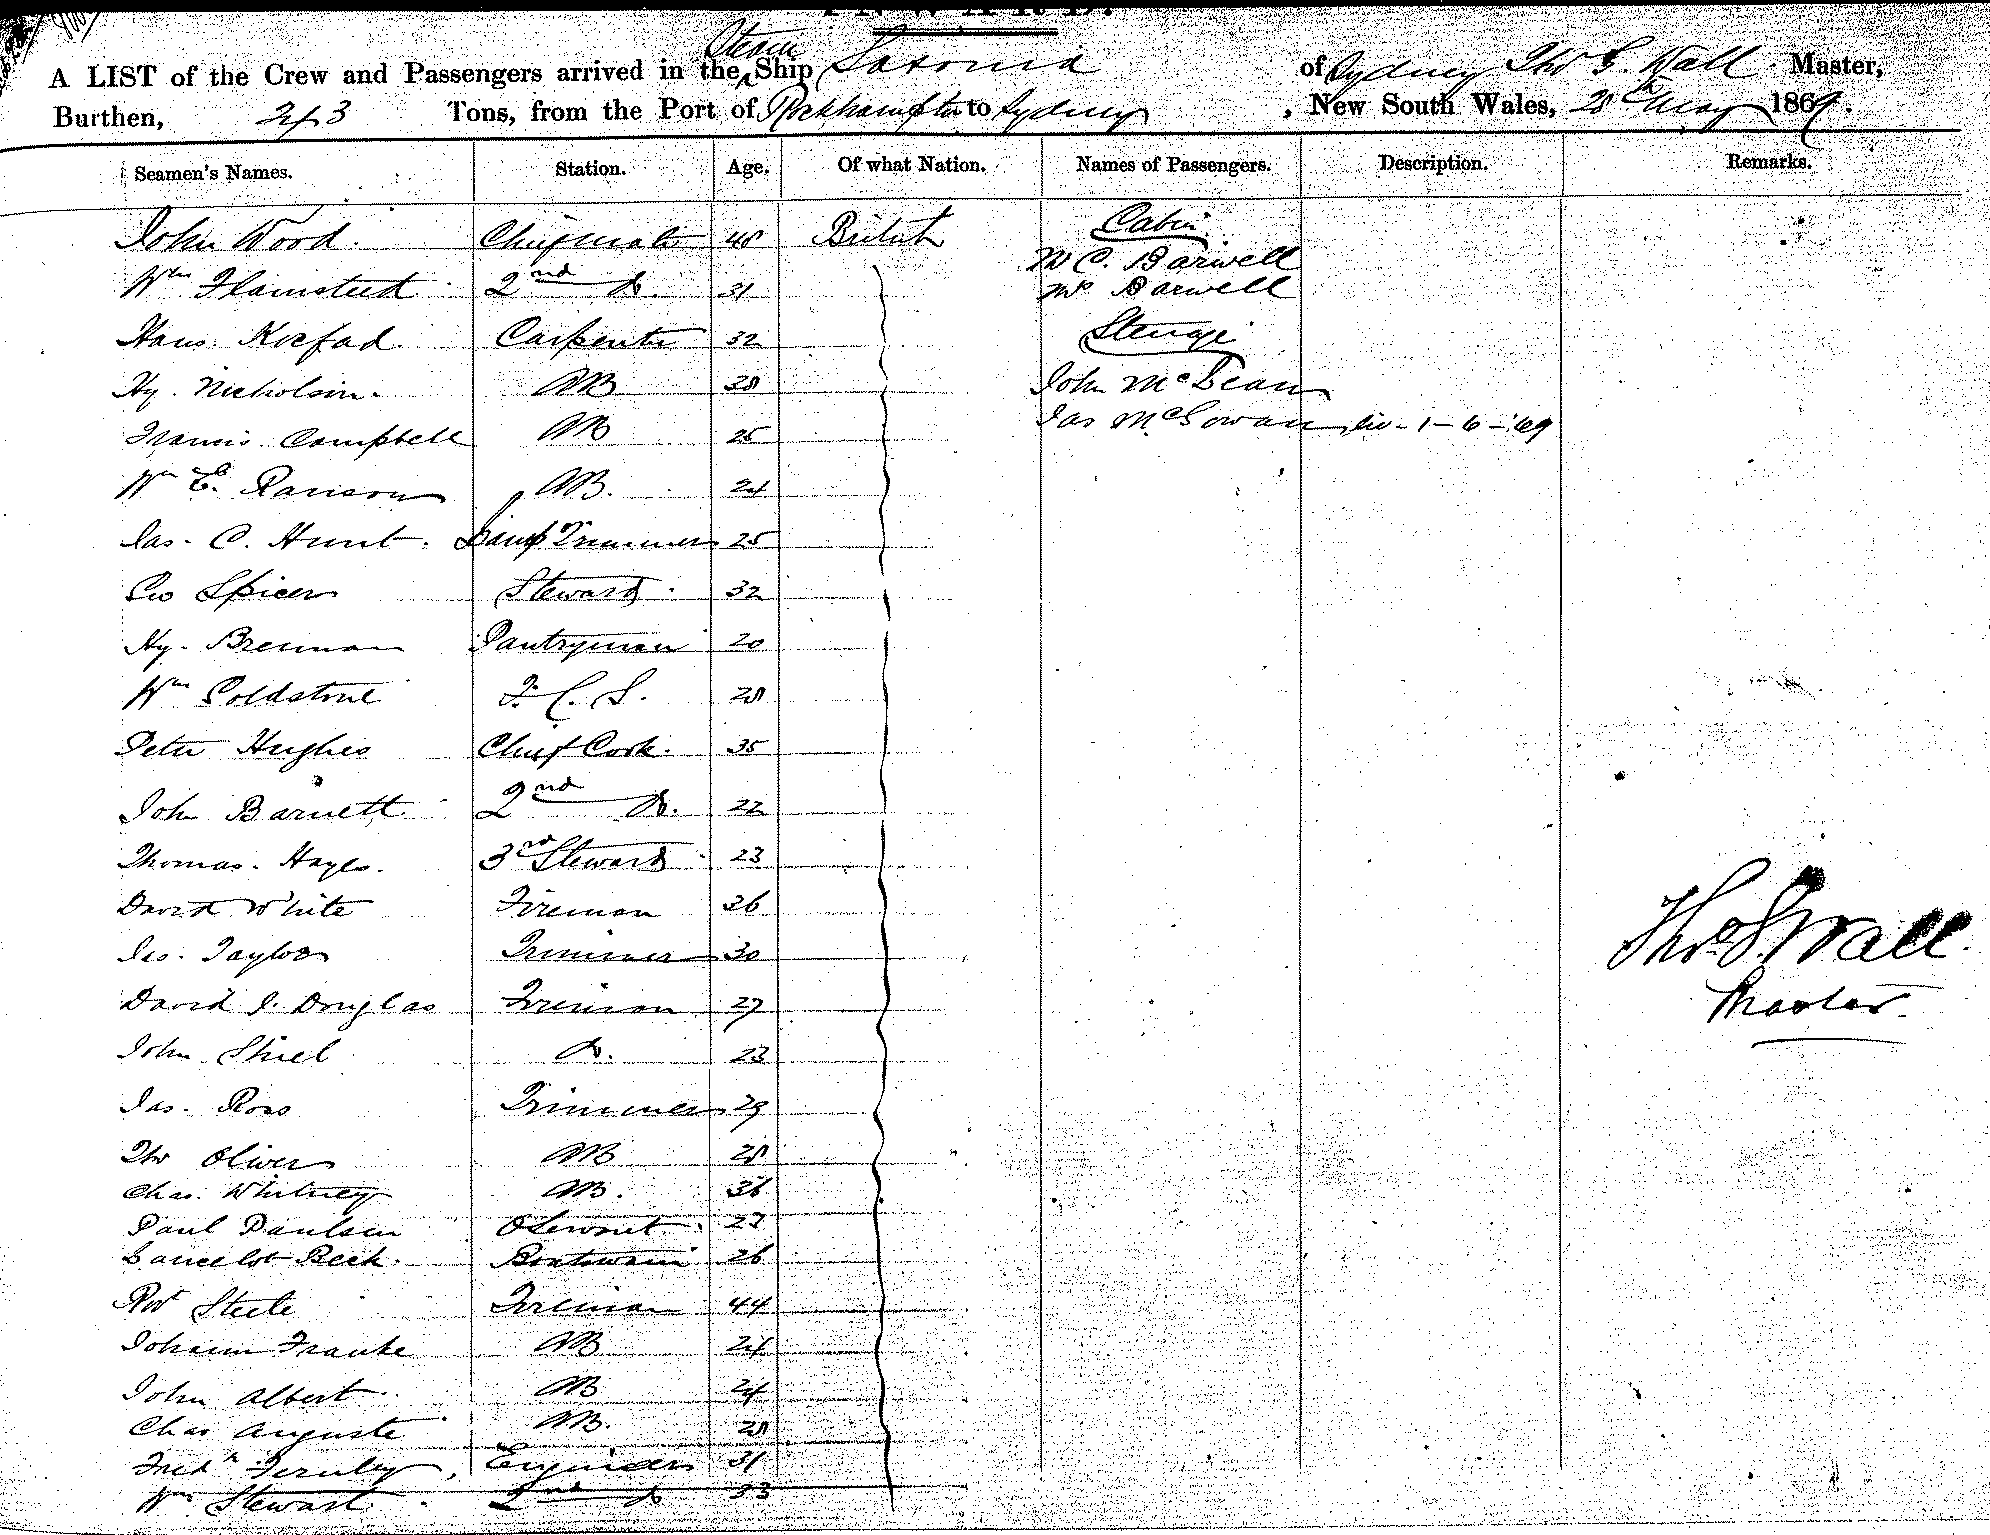 Steam
A LIST of the Crew and Passengers arrived in the Ship Saxonia of Sydney Thos S. Wall Master,
Burthen, 243 Tons, from the Port of Rockhampton to Sydney, New South Wales, 28th May 1869.
Seamen's Names. Station. Age. Of what Nation. Names of Passengers. Description. Remarks.
John Wood. Chief mate 48 British Cabin
M C. Barwell
Wm Flamsteed 2nd Do. 31 Mrs Barwell
Hans Carpenter 32 Steerage
Hy. Nicholson. AB 28 John McLean
Francis Campbell AB 25 Jas McGowan 1-6-'69
Wm E. Ranson AB. 24
Jas. C. Hunt. Lamp Trimmer 25
Geo Spicer Steward. 32
Hy. Brennan Pantryman 20
Wm Goldstone F. C. S. 28
Peter Hughes Chief Cook. 35
John Barnett 2nd Do. 22
Thomas. Hayes. 3rd Steward 23
David White Fireman 26
Jas. Taylor Trimmer 30
David J. Douglas Fireman 27
John Shiel Do. 23
Jas. Ross Trimmer 29
Thos Oliver AB 28
Chas. Whitney AB. 36
Paul Paulsen 23
Lancelot Beck. Boatswain 26
Robt Steele Fireman 44
Johann Franke AB 24
John Albert AB 24
Chas Auguste AB. 28
Fredk Fernley Engineer 31
Wm Stewart. 2nd Do 33
Thos S. Wall.
Master.